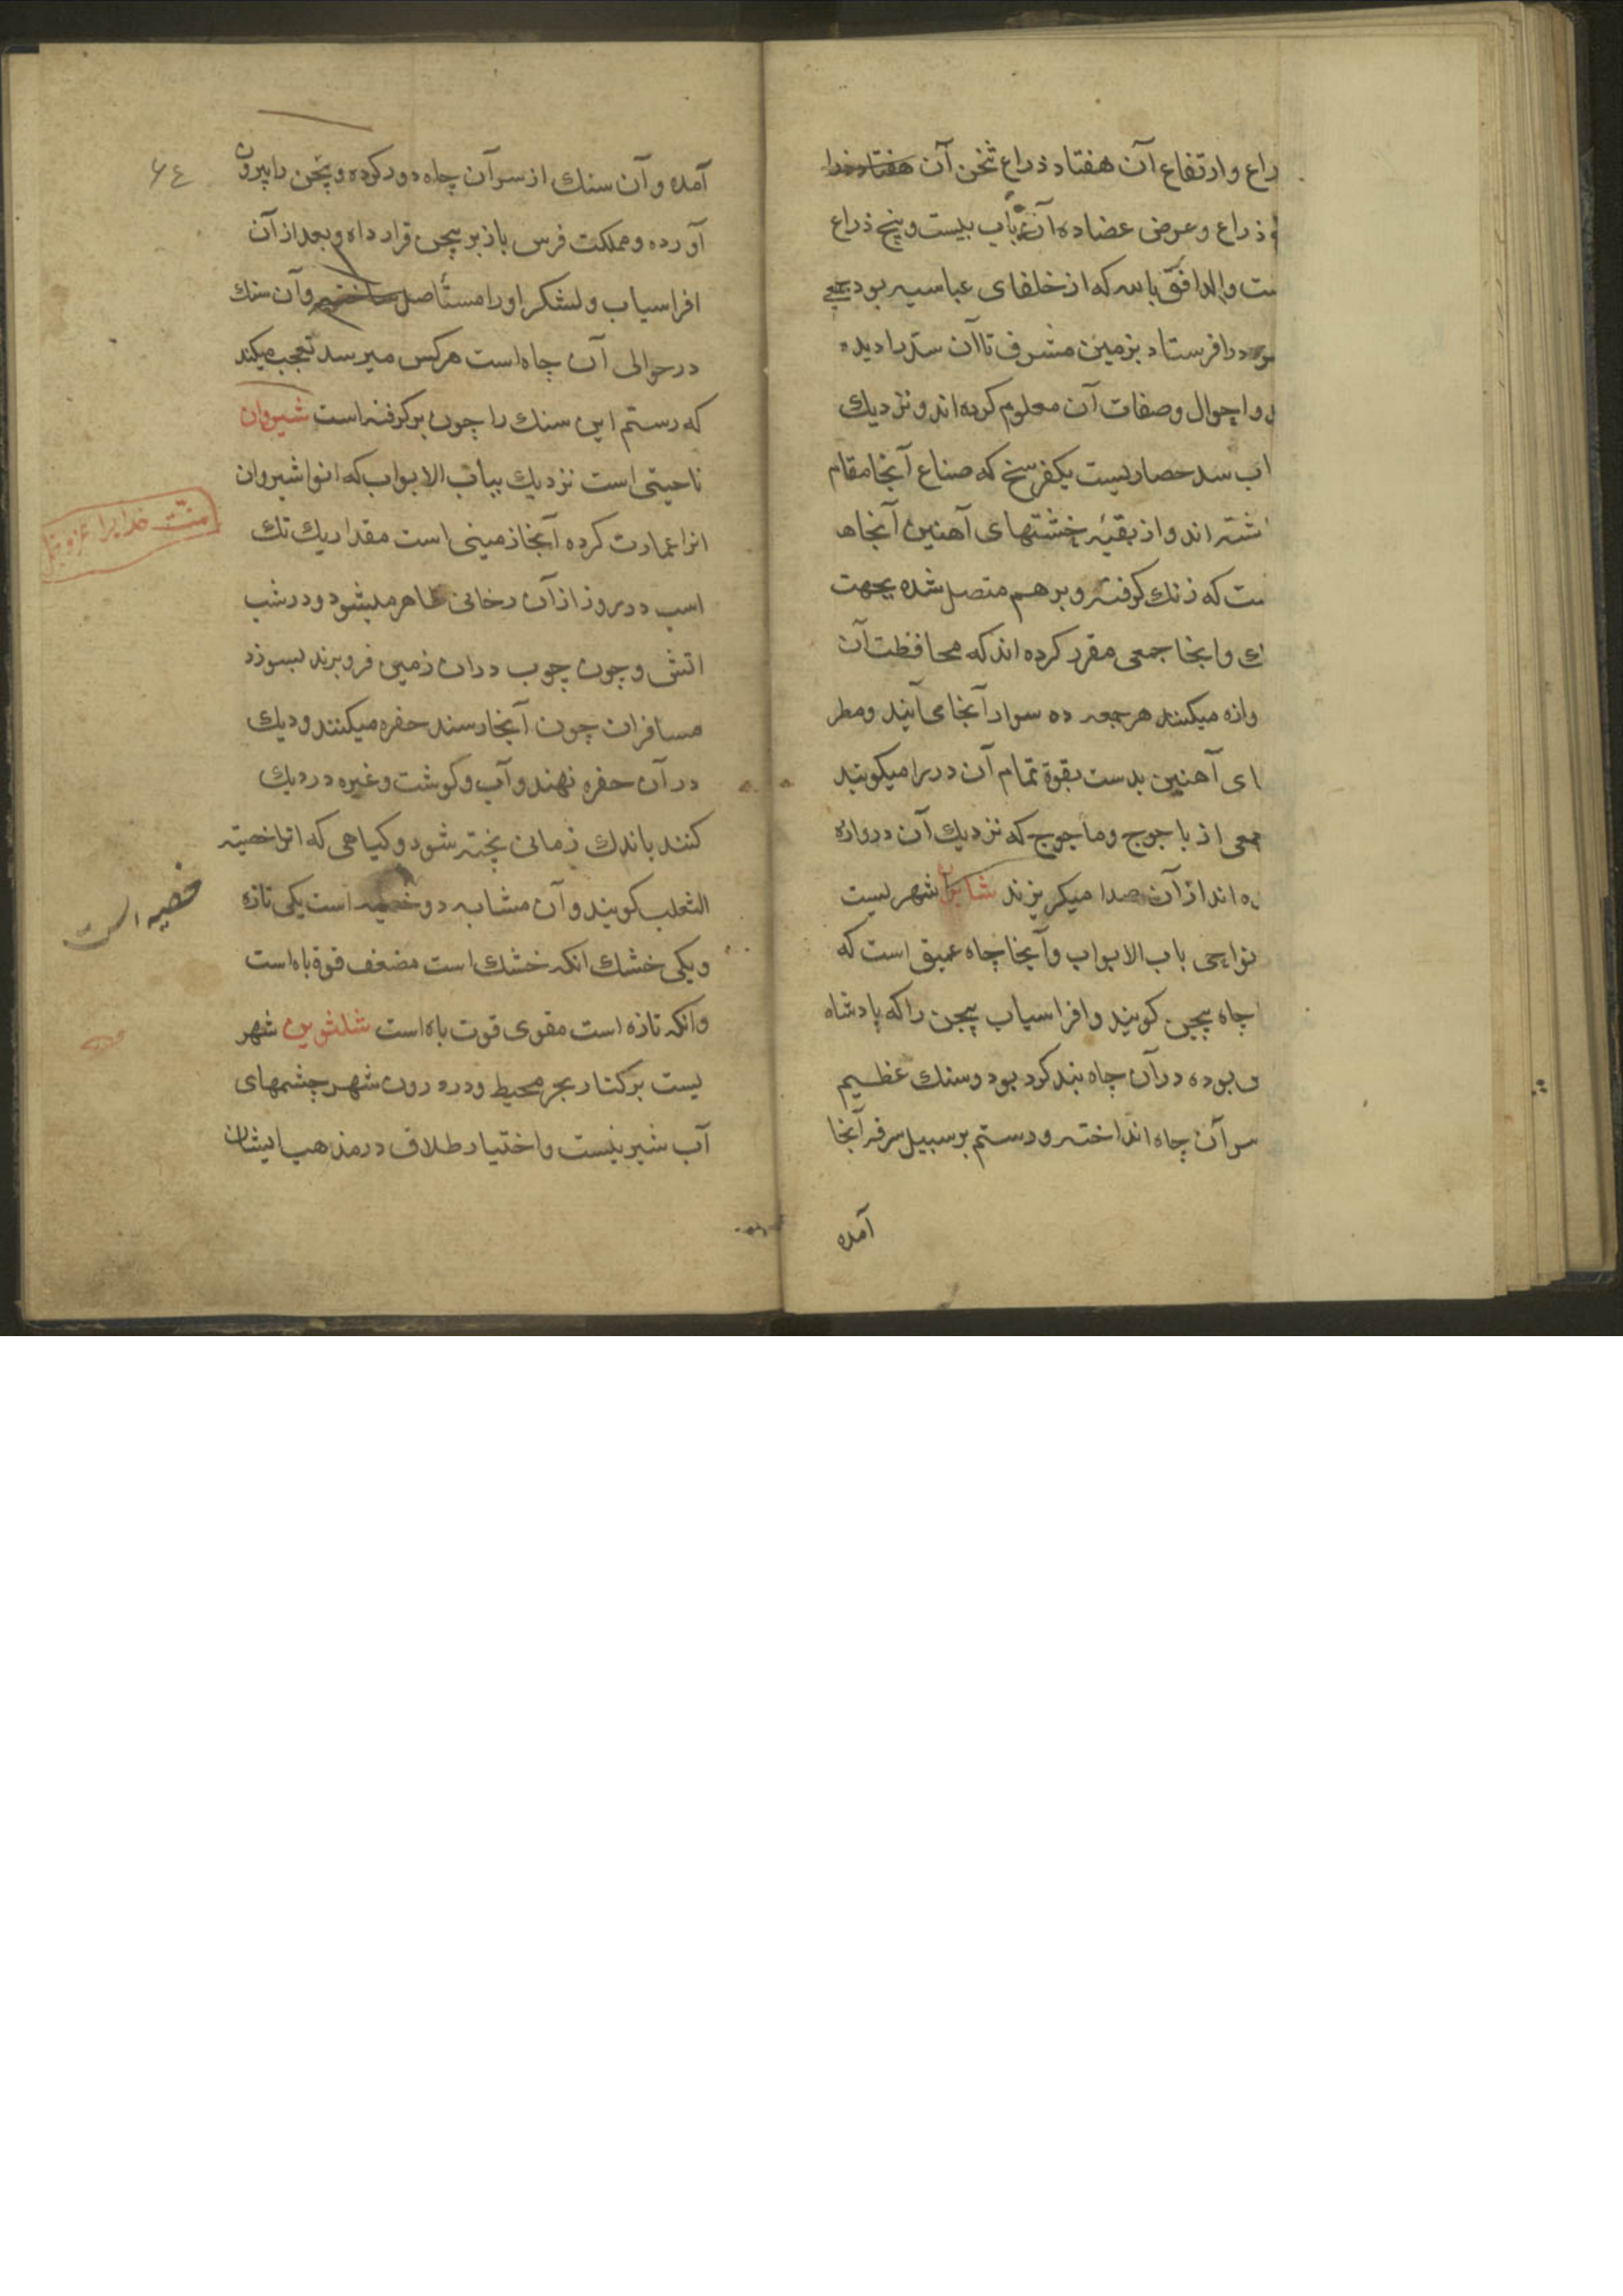 راع وارتفاع آن هفتاد ذراع ثخن آن هفتاد ذرا
ذراع وعرض عضاده آن باب بیست وپنج ذراع
ست والدافق بالله که از خلفای عباسیه بود جمعی
را فرستاد بزمین مشرف تا آن سدرا دیده
واحوال وصفات آن معلوم کرده اند ونزدیك
اب سد حصاریست یکفرسخ که صناع آنجا مقام
شته اند واز بقیهٔ خشتهای آهنین آنجاه
ست که زنك کرفته وبرهم متصل شده بجهت
ك وانجا جمعی مقرر کرده اند که محافظت آن
وازه میکنند هر جمعه ده سوار آنجا می آیند ومطر
ای آهنین بدست بقوة تمام آن دررا میکوبند
جمعی از یاجوج وماجوج که نزدیك آن دروازه
ه اند از آن صدا میکریزند شابران شهریست
نواحی باب الابواب وآنجا چاه عمیق است که
چاه بیجن کویند وافراسیاب بیجن را که پادشاه
بوده در آن چاه بند کرد بود وسنك عظیم
سر آن چاه انداخته ورستم بر سبیل سرفر آنجا
آمده
٦٤
آمده وآن سنك از سر آن چاه دور کرده وبیجن را بیرون
آورده ومملکت فرس باز بر بیجن قرار داه وبعد از آن
افراسیاب ولشکر اورا مستأصل ساخته وآن سنك
در حوالی آن چاه است هرکس میرسد تعجب میکند
که رستم این سنك را چون برکرفته است شیروان
ناحیتی است نزدیك بباب الابواب که انواشیروان
انرا عمارت کرده آنجا زمینی است مقدار یك تك
اسب در روز از آن دخانی ظاهر میشود ودر شب
اتش وچون چوب در ان زمین فرو برند بسوزد
مسافران چون آنجا رسند حفره میکنند ودیك
در آن حفره نهند وآب وکوشت وغیره در دیك
کنند باندك زمانی پخته شود وکیاهی که انرا خصیة
الثعلب کویند وآن مشابه دو خصیه است یکی تازه
ویکی خشك انکه خشك است مضعف قوة باه است
وانکه تازه است مقوی قوت باه است شلشوین شهر
یست بر کنار بحر محیط ودر درون شهر چشمهای
آب شیرینست واختیار طلاق در مذهب ایشان
منت خدایرا عز وجل
خصیه است